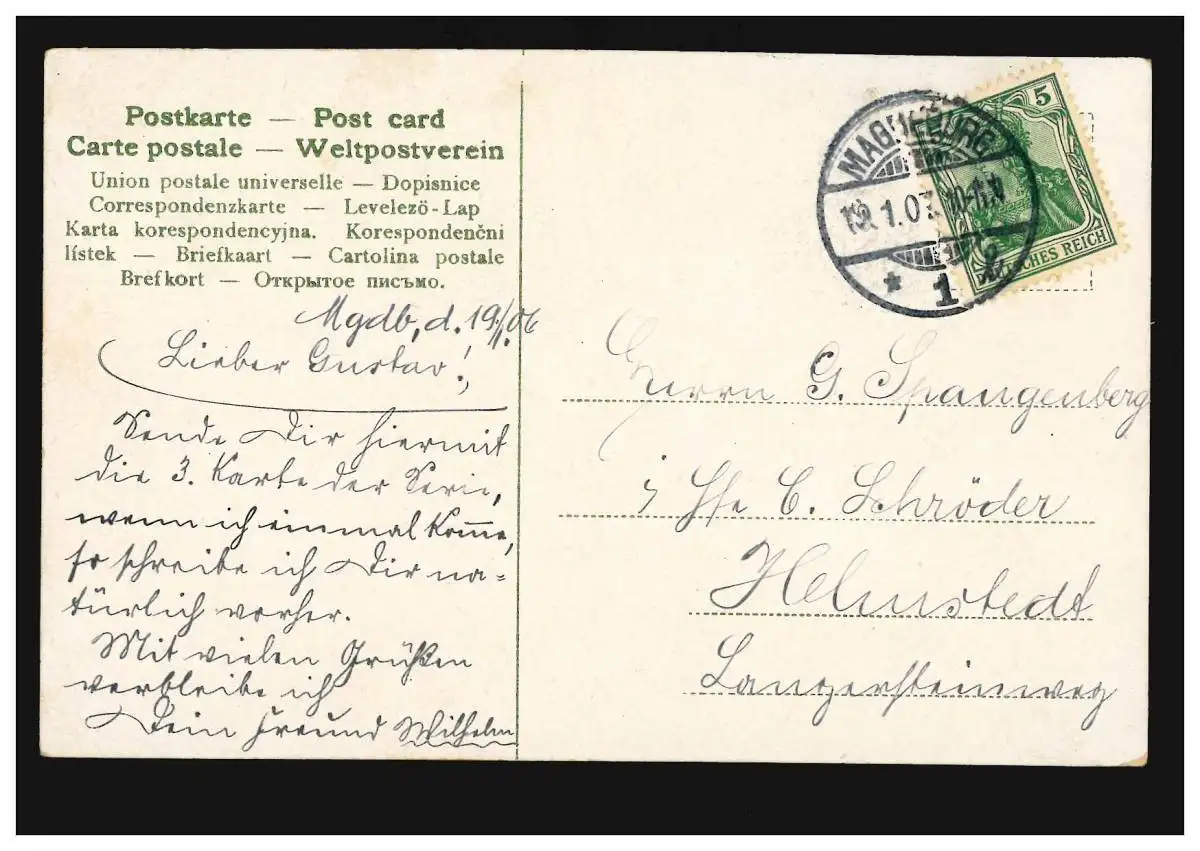 Postkarte — Post card
Carte postale — Weltpostverein
Union postale universelle — Dopisnice
Correspondenzkarte — Levelező-Lap
Karta korespondencyjna. Korespondenčni
lístek — Briefkaart — Cartolina postale
Brefkort — Открытое письмо.
Mgdb, d. 19/1.06
Lieber Gustav!
Sende Dir hiermit
die 3. Karte der Serie,
wenn ich einmal kom̄e,
so schreibe ich Dir na=
türlich vorher.
Mit vielen Grüßen
verbleibe ich
Dein Freund Wilhelm
MAGDEBURG
19.1.07. 10-11.V
* 1
5
DEUTSCHES REICH
Herrn G. Spangenberg
C. Schröder
Helmstedt
Langersteinweg